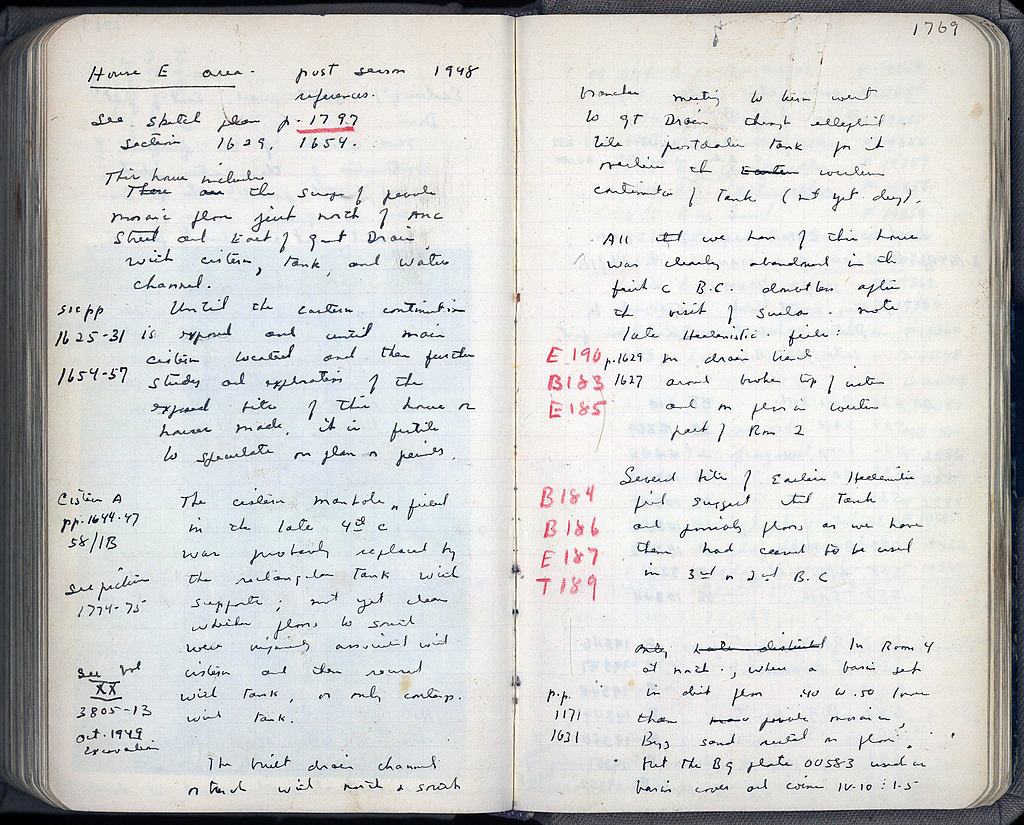 House E area. post season 1948
references.
See sketch plan p. 1797
section 1629, 1654.
This house includes
There are the scraps of pebble
mosaic floor just north of Anc
Street and East of Great Drain,
with cistern, tank, and water
channel.
see pp Until the eastern continuation
1625-31 is exposed and until main
cistern located and then further
1654-57 study and exploration of the
exposed bits of this house or
houses made, it is futile
to speculate on plan or periods.
Cistern A The cistern manhole, filled
pp. 1644-47 in the late 4th c
58/1B was probably replaced by
see picture the rectangular tank with
1774-75 supports; not yet clear
whether floors to south
were originally associated with
See Vol cistern and then reused
XX with tank, or only contemp.
3805-13 with tank.
Oct. 1949
excavation
The built drain channel
or tank with north & south
1769
branches meeting to turn west
to Gt Drain through
late tank for it
overlies the Eastern western
continuation of tank (not yet dug).
All that we have of this house
was clearly abandoned in the
first c B.C. doubtless after
the visit of Sulla. note
late Hellenistic fill:
E 190 p. 1629 in drain
B 183 1627 around broken top of cistern
E 185 and on floor in western
part of Rm 2
Several bits of Earlier Hellenistic
B 184 fill suggest that Tank
B 186 and possibly floors as we have
E 187 them had ceased to be used
T 189 in 3rd or 2nd B.C
only In Room 4
at north, where a basin set
p.p. in dirt floor .40 to .50 lower
1171 than pebble mosaic,
1631 Byz sand rested on floor.
but the Bg plate 00583 used as
basin cover and coins IV-10: 1-5